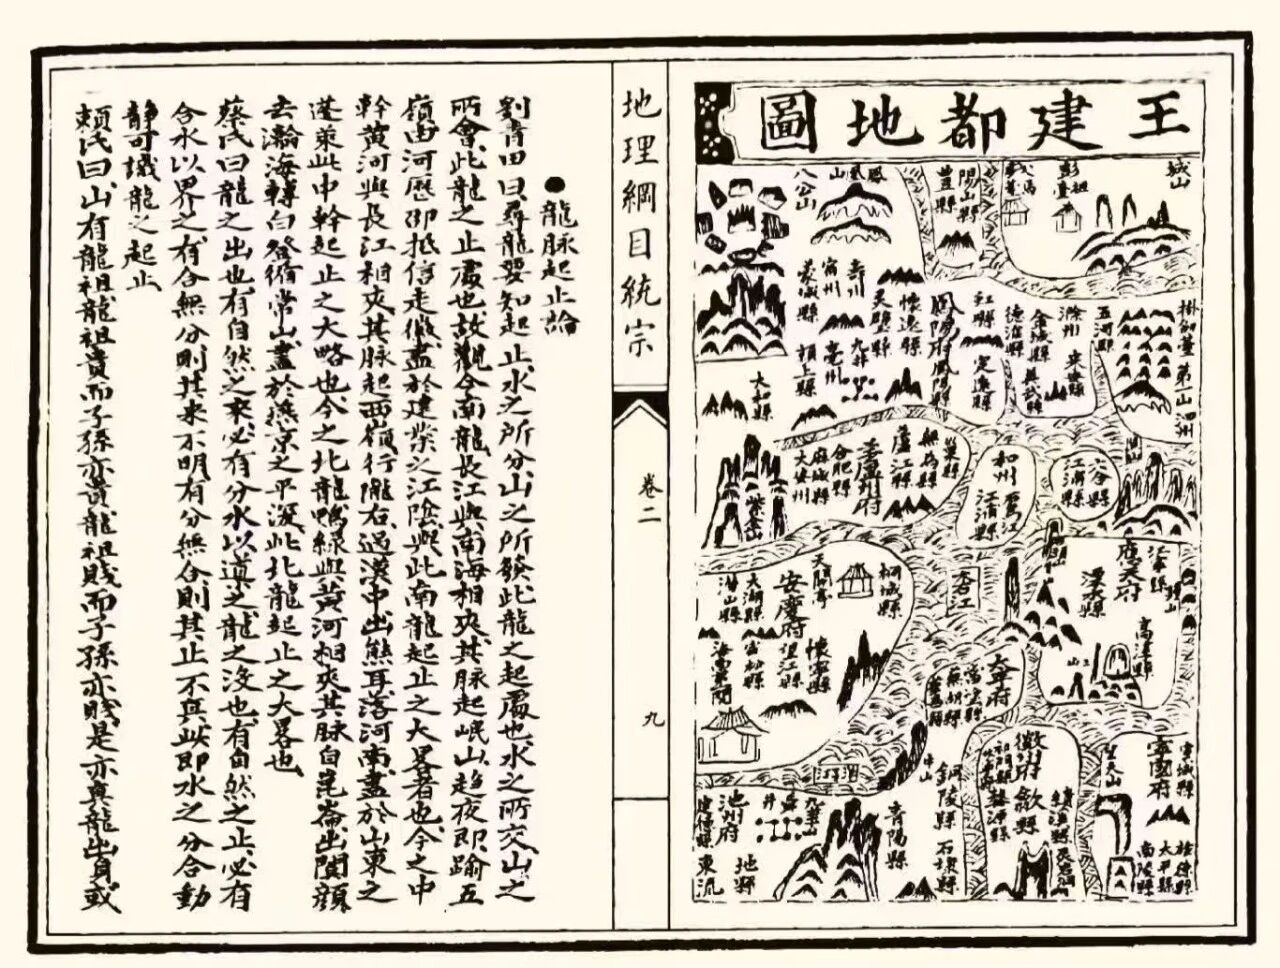 王建都地圖
城山
彭祖臺
碭山縣
豐縣
鳳凰山
八公山
掛劍臺
第一山
泗州
五河縣
滁州
來安縣
金城縣
德淮縣
虹縣
定遠縣
鳳陽府鳳陽縣
懷遠縣
天壁縣
壽州
宿州
亳州
蒙城縣
頴上縣
太和縣
六合縣
江浦縣
和州
烏江
巢縣
無為縣
廬江縣
廬州府
合肥縣
麻城縣
大安州
紫金山
應天府
溧水縣
江寧縣
高淳縣
杏江
桐城縣
天開亭
安慶府
懷寧縣
望江縣
太湖縣
潛山縣
宿松縣
太平府
當塗縣
蕪湖縣
寧國府
宣城縣
旌德縣
太平縣
南陵縣
徽州府
歙縣
績溪縣
婺源縣
祁門縣
銅陵縣
石埭縣
青陽縣
九華山
池州府
建德縣
東流
地理綱目統宗
卷二
九
●龍脉起止論
劉青田曰尋龍要知起止水之所分山之所發此龍之起處也水之所交山之
所會此龍之止處也故觀今南龍長江與南海相夾其脉起岷山趨夜郎踰五
嶺由河歷邵抵信走徽盡於建業之江陰與此南龍起止之大畧者也今之中
幹黃河與長江相夾其脉起西嶺行隴右過漢中出熊耳落河南盡於山東之
蓬萊此中幹起止之大略也今之北龍鴨綠與黃河相夾其脉自崑崙出闐顏
去瀚海轉白登循常山盡於燕京之平灤此北龍起止之大畧也
蔡氏曰龍之出也有自然之來必有分水以導之龍之沒也有自然之止必有
合水以界之有合無分則其來不明有分無合則其止不真此即水之分合動
靜可識龍之起止
賴氏曰山有龍祖龍祖貴而子孫亦貴龍祖賤而子孫亦賤是亦真龍出身或